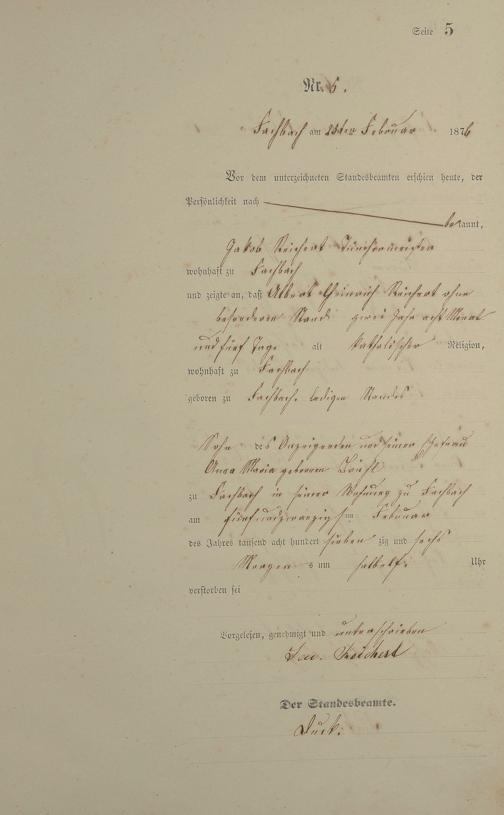 Seite 5
Nr. 5.
Fachbach am Februar 1876
Vor dem unterzeichneten Standesbeamten erschien heute, der
Persönlichkeit nach
bekannt,
Jakob Reichert Tünchermeister
wohnhaft zu Fachbach
und zeigte an, daß Albert Heinrich Reichert ohne
besonderen Stand zwei Jahr acht Monat
und fünf Tage alt katholischer Religion,
wohnhaft zu Fachbach
geboren zu Fachbach ledigen Standes
Sohn des Anzeigenden und seiner Ehefrau
Anna Maria geborenen
zu Fachbach in seiner Wohnung zu Fachbach
am fünfundzwanzigsten Februar
des Jahres tausend acht hundert siebenzig und sechs
Morgens um halb elf Uhr
verstorben sei
Vorgelesen, genehmigt und unterschrieben
Jac. Reichert
Der Standesbeamte.